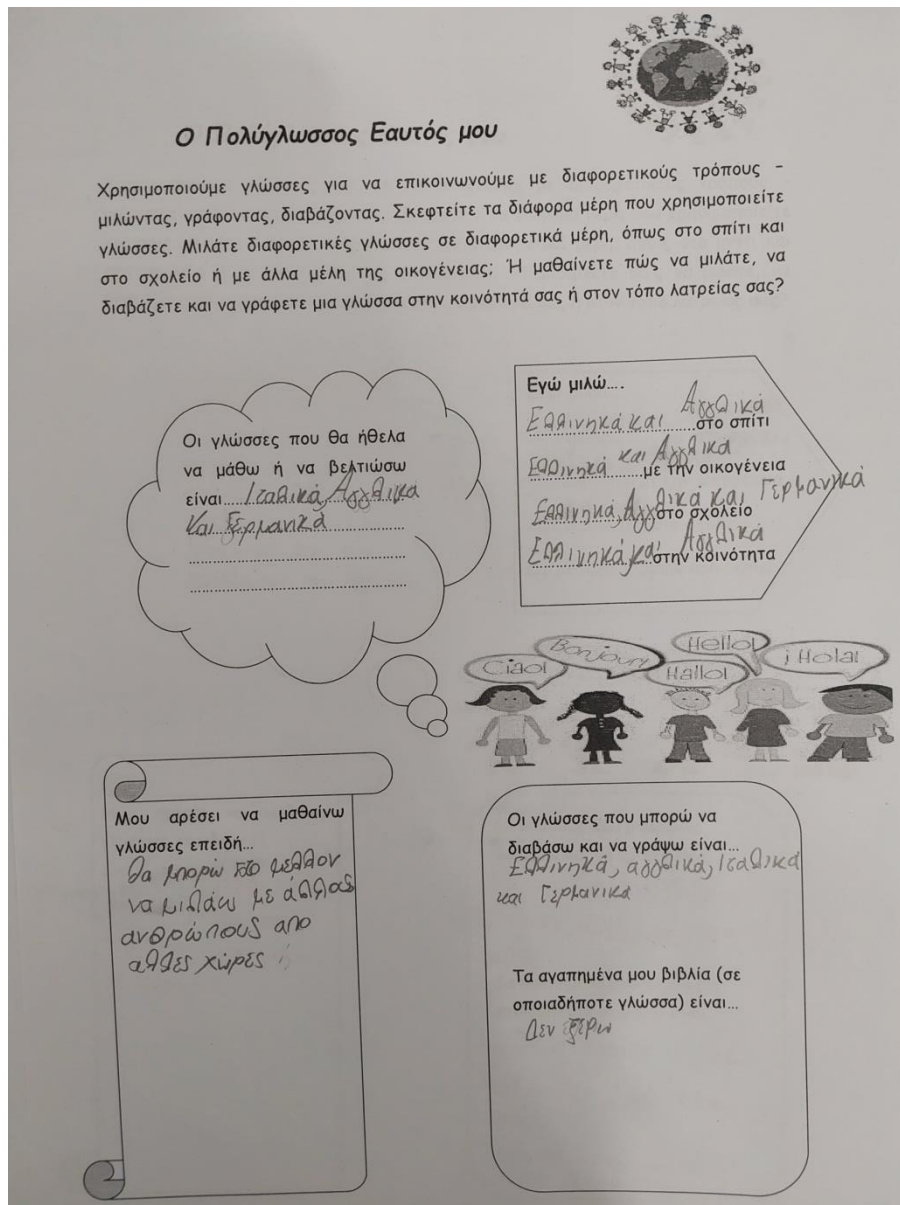 Ο Πολύγλωσσος Εαυτός μου
Χρησιμοποιούμε γλώσσες για να επικοινωνούμε με διαφορετικούς τρόπους –
μιλώντας, γράφοντας, διαβάζοντας. Σκεφτείτε τα διάφορα μέρη που χρησιμοποιείτε
γλώσσες. Μιλάτε διαφορετικές γλώσσες σε διαφορετικά μέρη, όπως στο σπίτι και
στο σχολείο ή με άλλα μέλη της οικογένειας; Ή μαθαίνετε πώς να μιλάτε, να
διαβάζετε και να γράφετε μια γλώσσα στην κοινότητά σας ή στον τόπο λατρείας σας?
Οι γλώσσες που θα ήθελα
να μάθω ή να βελτιώσω
είναι....Ιταλικά, Αγγλικά
Και Γερμανικά
Εγώ μιλώ....
Ελλινηκά και Αγγλικά στο σπίτι
Ελλινηκά και Αγγλικά με την οικογένεια
Ελλινηκά, Αγγλικά και Γερμανικά στο σχολείο
Ελλινηκά και Αγγλικά στην κοινότητα
Ciao! Bonjour! Hallo! Hello! ¡Hola!
Μου αρέσει να μαθαίνω
γλώσσες επειδή...
θα μπορώ στο μέλλον
να μιλάω με άλλους
ανθρώπους απο
αλλες χώρες
Οι γλώσσες που μπορώ να
διαβάσω και να γράψω είναι...
Ελλινηκά, αγγλικά, Ιταλικά
και Γερμανικα
Τα αγαπημένα μου βιβλία (σε
οποιαδήποτε γλώσσα) είναι...
Δεν ξερω